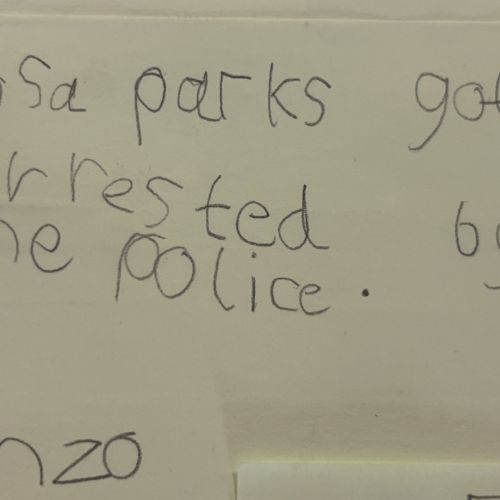 osa parks got
rrested by
he police.
nzo